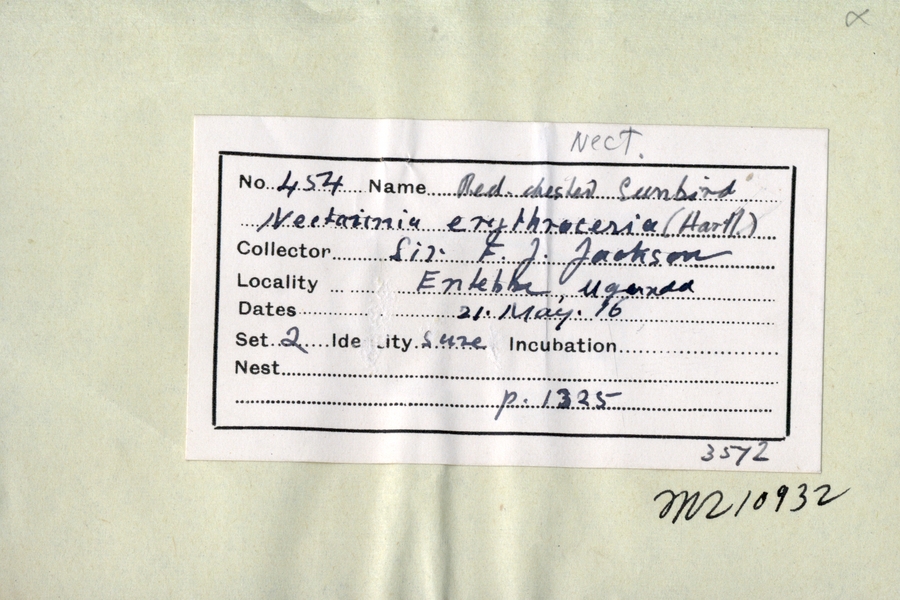 Nect.
No. 454 Name Red. chested Sunbird
Nectarinia erythroceria (Hartl.)
Collector Sir. F. J. Jackson
Locality Entebbe, Uganda
Dates 21. May. 16
Set 2 Ide ity sure Incubation
Nest
p. 1325
3572
M210932